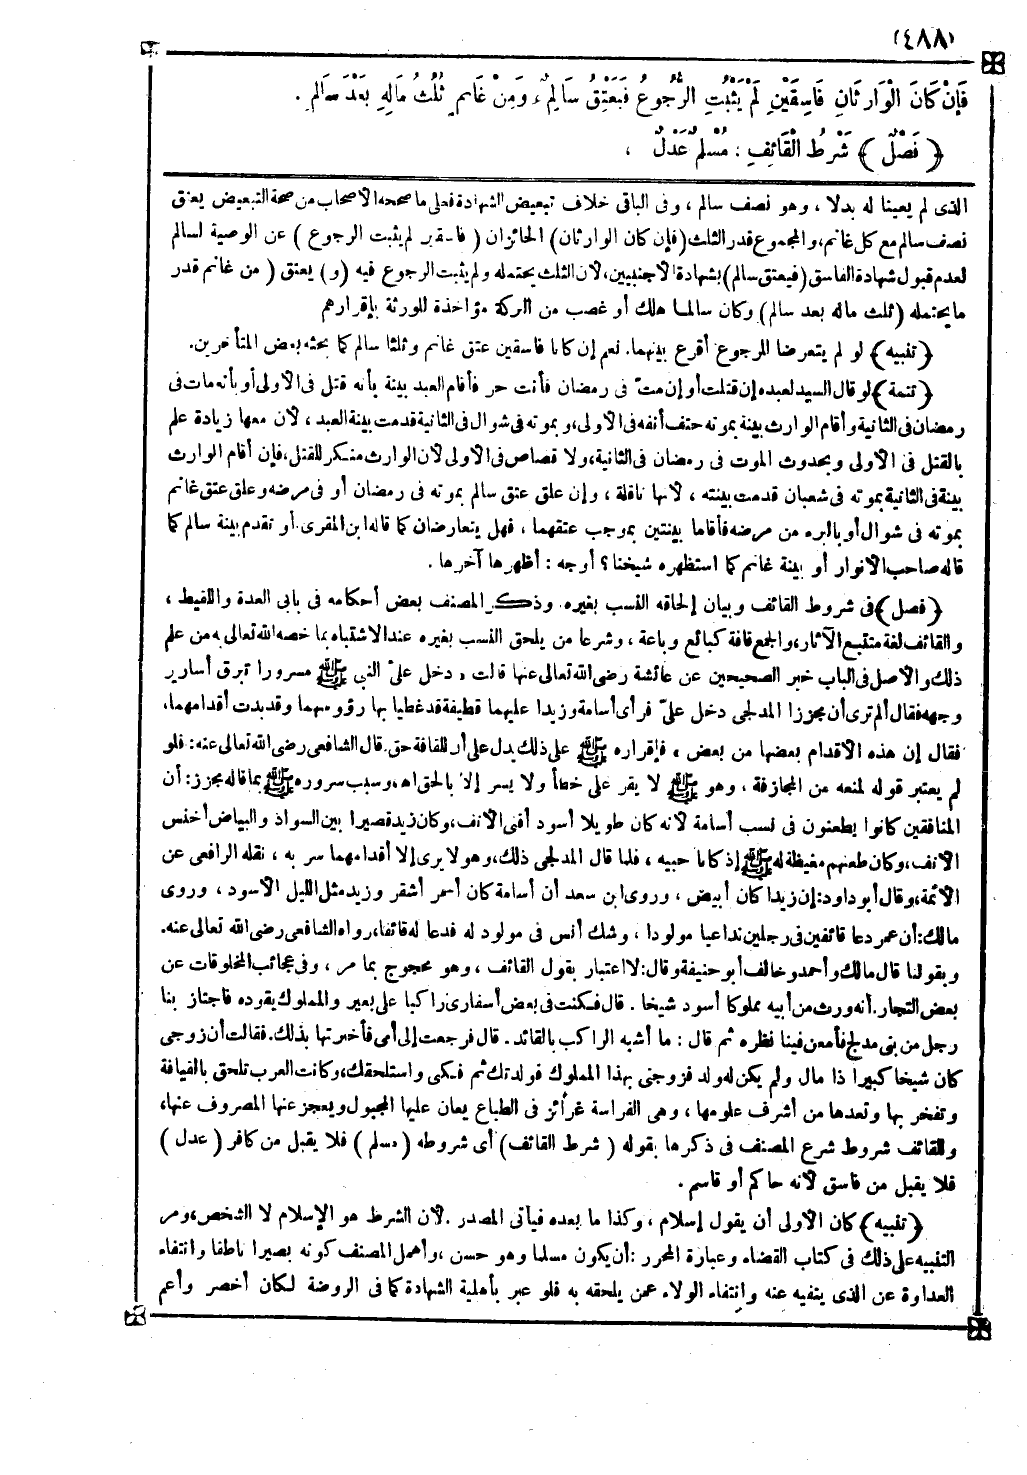 (٤٨٨)
فَإِنْ كَانَ الْوَارِثَانِ فَاسِقَيْنِ لَمْ يَثْبُتِ الرُّجُوعُ فَيَعْتِقُ سَالِمٌ، وَمِنْ غَانِمٍ ثُلُثُ مَالِهِ بَعْدَ سَالِمٍ .
﴿ فَصْلٌ ﴾ شَرْطُ الْقَائِفِ : مُسْلِمٌ عَدْلٌ ،
الذى لم يعينا له بدلا ، وهو نصف سالم ، وفى الباقى خلاف تبعيض الشهادة فعلى ما صححه الأصحاب من صحة التبعيض يعتق
نصف سالم مع كل غانم، والمجموع قدر الثلث (فإن كان الوارثان) الحائزان ( فاسقين لم يثبت الرجوع ) عن الوصية لسالم
لعدم قبول شهادة الفاسق (فيعتق سالم) بشهادة الأجنبيين، لأن الثلث يحتمله ولم يثبت الرجوع فيه (و) يعتق ( من غانم قدر
ما يحتمله (ثلث ماله بعد سالم) وكأن سالما هلك أو غصب من التركة مؤاخذة للورثة بإقرارهم
﴿تنبيه﴾ لو لم يتعرضا للرجوع أقرع بينهما. نعم إن كانا فاسقين عتق غانم وثلثا سالم كما بحثه بعض المتأخرين.
﴿تتمة﴾ لو قال السيد لعبده إن قتلت أو إن متّ فى رمضان فأنت حر فأقام العبد بينة بأنه قتل فى الأولى أو بأنه مات فى
رمضان فى الثانية وأقام الوارث بينة بموته حتف أنفه فى الأولى، وبموته فى شوال فى الثانية قدمت بينة العبد ، لأن معها زيادة علم
بالقتل فى الأولى وبحدوث الموت فى رمضان فى الثانية، ولا قصاص فى الأولى لأن الوارث منكر للقتل، فإن أقام الوارث
بينة فى الثانية بموته فى شعبان قدمت بينته ، لأنها ناقلة ، وإن علق عتق سالم بموته فى رمضان أو فى مرضه وعلق عتق غانم
بموته فى شوال أو بالبرء من مرضه فأقاما بينتين بموجب عتقهما ، فهل يتعارضان كما قاله ابن المقرى أو تقدم بينة سالم كما
قاله صاحب الأنوار أو بينة غانم كما استظهره شيخنا ؟ أوجه : أظهرها آخرها .
﴿فصل﴾ فى شروط القائف وبيان إلحاقه النسب بغيره. وذكر المصنف بعض أحكامه فى بابى العدة واللقيط ،
والقائف لغة متتبع الآثار، والجمع قافة كبائع وباعة ، وشرعا من يلحق النسب بغيره عند الاشتباه بما خصه الله تعالى به من علم
ذلك والأصل فى الباب خبر الصحيحين عن عائشة رضى الله تعالى عنها قالت « دخل علىّ النبى ﷺ مسرورا تبرق أسارير
وجهه فقال ألم ترى أن مجززا المدلجى دخل علىّ فرأى أسامة وزيدا عليهما قطيفة قد غطيا بها رؤوسهما وقد بدت أقدامهما،
فقال إن هذه الأقدام بعضها من بعض » فإقراره ﷺ على ذلك يدل على أن القافة حق. قال الشافعى رضى الله تعالى عنه: فلو
لم يعتبر قوله لمنعه من المجازفة ، وهو ﷺ لا يقر على خطأ ولا يسر إلا بالحق اه، وسبب سروره ﷺ بما قاله مجزز: أن
المنافقين كانوا يطعنون فى نسب أسامة لأنه كان طويلا أسود أقنى الأنف، وكان زيد قصيرا بين السواد والبياض أخنس
الأنف، وكان طعنهم مغيظة له ﷺ إذ كانا حبيه ، فلما قال المدلجى ذلك، وهو لا يرى إلا أقدامهما سر به ، نقله الرافعى عن
الأئمة، وقال أبو داود: إن زيدا كان أبيض ، وروى ابن سعد أن أسامة كان أسمر أشقر وزيد مثل الليل الأسود ، وروى
مالك: أن عمر دعا قائفين فى رجلين تداعيا مولودا ، وشك أنس فى مولود له فدعا له قائفا، رواه الشافعى رضى الله تعالى عنه.
وبقولنا قال مالك وأحمد وخالف أبو حنيفة وقال: لا اعتبار بقول القائف ، وهو محجوج بما مر ، وفى عجائب المخلوقات عن
بعض التجار. أنه ورث من أبيه مملوكا أسود شيخا . قال فكنت فى بعض أسفارى راكبا على بعير والمملوك يقوده فاجتاز بنا
رجل من بنى مدلج فأمعن فينا نظره ثم قال : ما أشبه الراكب بالقائد. قال فرجعت إلى أمى فأخبرتها بذلك. فقالت أن زوجى
كان شيخا كبيرا ذا مال ولم يكن له ولد فزوجنى بهذا المملوك فولدتك ثم فكنى واستلحقك، وكانت العرب تلحق بالقيافة
وتفخر بها وتعدها من أشرف علومها ، وهى الفراسة غرائز فى الطباع يعان عليها المجبول ويعجز عنها المصروف عنها،
وللقائف شروط شرع المصنف فى ذكرها بقوله ( شرط القائف) أى شروطه ( مسلم ) فلا يقبل من كافر ( عدل )
فلا يقبل من فاسق لأنه حاكم أو قاسم .
﴿تنبيه﴾ كان الأولى أن يقول إسلام ، وكذا ما بعده فيأتى المصدر . لأن الشرط هو الإسلام لا الشخص، ومر
التنبيه على ذلك فى كتاب القضاء وعبارة المحرر : أن يكون مسلما وهو حسن ، وأهمل المصنف كونه بصيرا ناطقا وانتفاء
العداوة عن الذى ينفيه عنه وانتفاء الولاء عمن يلحقه به فلو عبر بأهلية الشهادة كما فى الروضة لكان أخصر وأعم